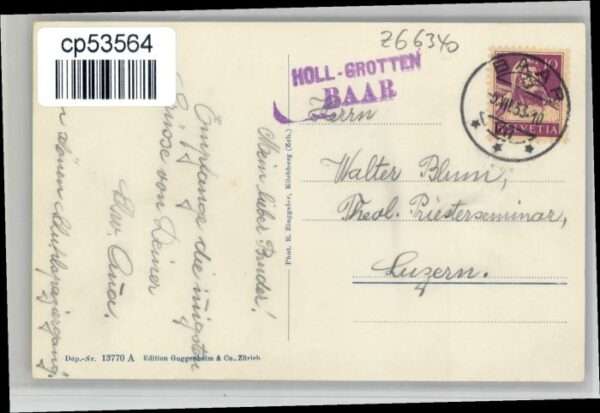 cp53564
Z66340
HOLL-GROTTEN
BAAR
10
BAAR
HELVETIA
Herrn
Walter Blum,
Theol. Priesterseminar,
Luzern.
Mein lieber Bruder!
Empfange die innigsten
Grüsse von Deiner
Schw. Anna.
schönen
Phot. E. Zinggeler, Kilchberg (Zch.)
Dép.-Nr. 13770 A Edition Guggenheim & Co., Zürich